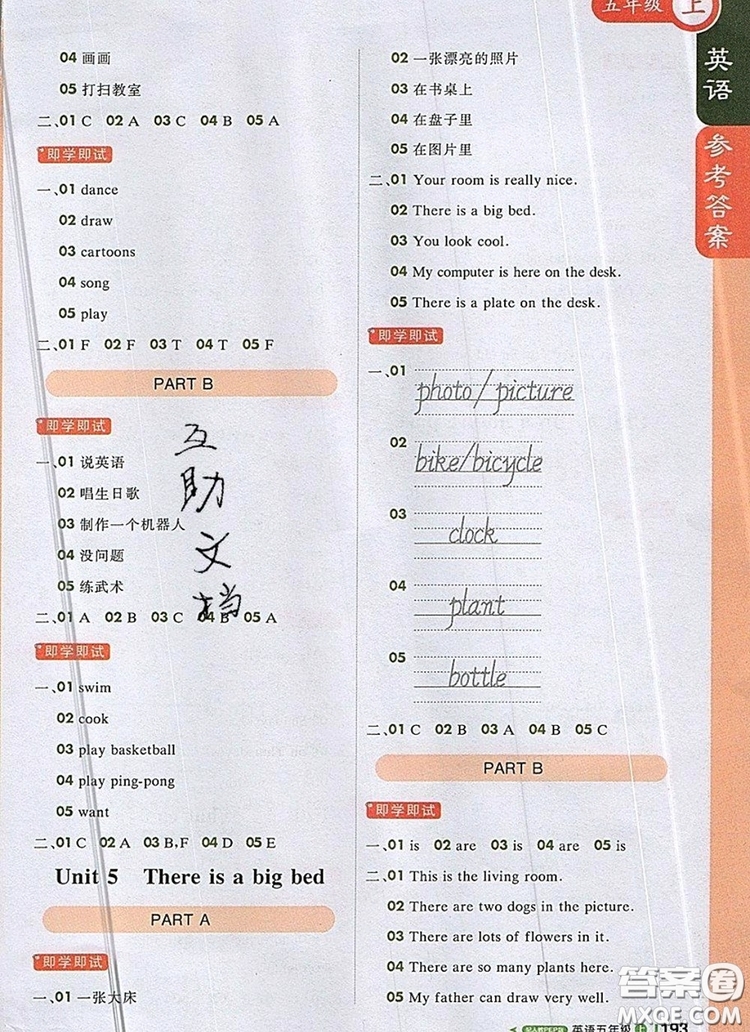 五年级 上
英语
参考答案
04 画画
05 打扫教室
二、01 C 02 A 03 C 04 B 05 A
即学即试
一、01 dance
02 draw
03 cartoons
04 song
05 play
二、01 F 02 F 03 T 04 T 05 F
PART B
即学即试
一、01 说英语
02 唱生日歌
03 制作一个机器人
04 没问题
05 练武术
二、01 A 02 B 03 C 04 B 05 A
即学即试
一、01 swim
02 cook
03 play basketball
04 play ping-pong
05 want
二、01 C 02 A 03 B,F 04 D 05 E
Unit 5 There is a big bed
PART A
即学即试
一、01 一张大床
互助文档
02 一张漂亮的照片
03 在书桌上
04 在盘子里
05 在图片里
二、01 Your room is really nice.
02 There is a big bed.
03 You look cool.
04 My computer is here on the desk.
05 There is a plate on the desk.
即学即试
一、01
photo/picture
02
bike/bicycle
03
clock
04
plant
05
bottle
二、01 C 02 B 03 A 04 B 05 C
PART B
即学即试
一、01 is 02 are 03 is 04 are 05 is
二、01 This is the living room.
02 There are two dogs in the picture.
03 There are lots of flowers in it.
04 There are so many plants here.
05 My father can draw very well.
英语五年级 上 193
答案圈
MXQE.COM